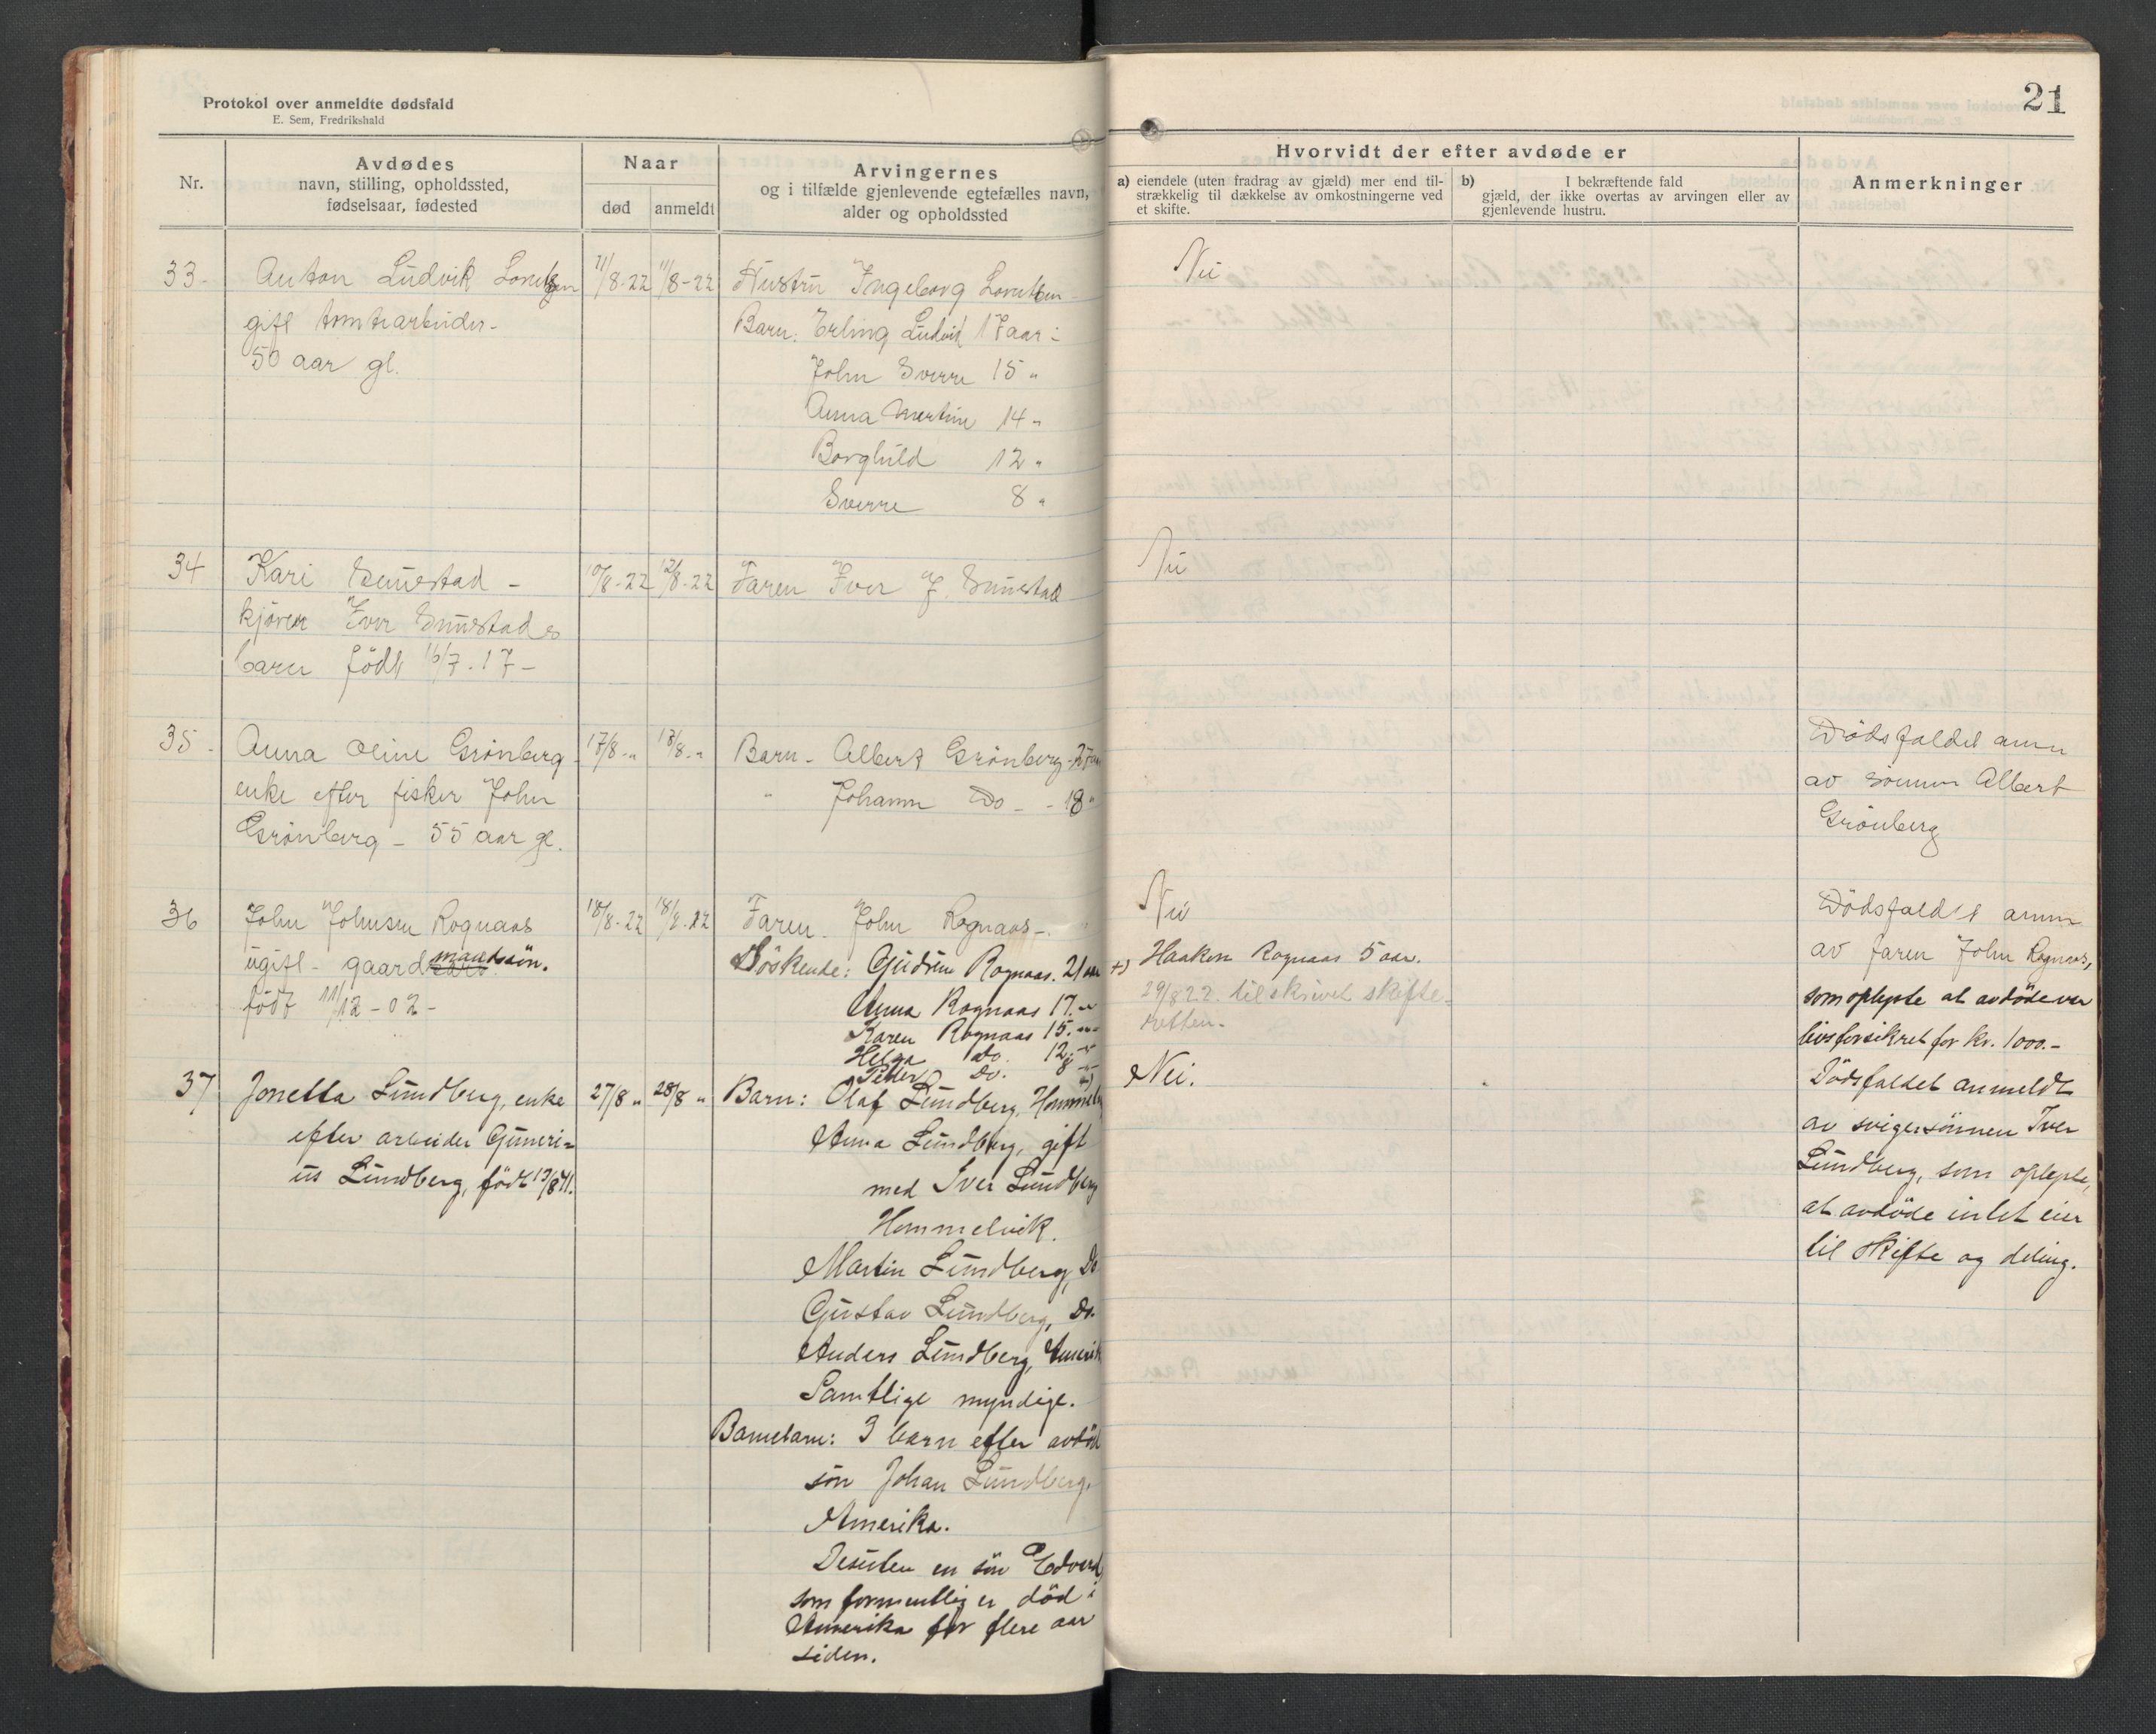 Protokol over anmeldte dødsfald
E. Sem, Fredrikshald
21
Nr.
Avdødes
navn, stilling, opholdssted,
fødselsaar, fødested
Naar
død
anmeldt
Arvingernes
og i tilfælde gjenlevende egtefælles navn,
alder og opholdssted
Hvorvidt der efter avdøde er
a) eiendele (uten fradrag av gjæld) mer end til-
strækkelig til dækkelse av omkostningerne ved
et skifte.
b) I bekræftende fald
gjæld, der ikke overtas av arvingen eller av
gjenlevende hustru.
Anmerkninger
33. Anton Ludvik Lorntsen 11/8-22 11/8-22 Hustru Ingeborg Lorntsen Nei
gift tomtearbeider-
50 aar gl.
Barn: Erling Ludvik 17 aar -
John Sverre 15 "
Anna Martine 14 "
Borghild 12 "
Sverre 8 "
34 Kari Sunestad - 10/8-22 12/8-22 Faren Iver J. Sunestad Nei
kjører Iver Sunestads
barn födt 16/7.17-
35- Anna Oline Grönberg 17/8-" 18/8-" Barn- Albert Grönberg-27 aar
enke efter fisker John
Grönberg - 55 aar gl.
" Johann Do - - 18 "
Dödsfaldet anm
av sönnen Albert
Grönberg
36 John Johnsen Rognaas 18/8-22 18/8-22 Faren. John Rognaas-. Nei
ugift - gaardmandssön.
födt 11/12-02-
Söskende: Gudrun Rognaas. 21 aar
Anna Rognaas 17. "
Karen Rognaas 15. "
Helga do. 12. "
Petter Do. 8 " +)
+) Haakon Rognaas 5 aar.
29/8 22. tilskrivet skifte-
retten.
Dödsfaldet anm
av faren John Rognaas,
som oplyste at avdöde var
livsforsikret for kr. 1000.-
37 Jonetta Lundberg, enke 27/8 " 28/8 " Barn: Olaf Lundberg, Hommelv Nei.
efter arbeider Guneri-
us Lundberg, födt 13/8 41.
Anna Lundberg, gift
med Iver Lundberg
Hommelvik.
Martin Lundberg, Do
Gustav Lundberg, Do.
Anders Lundberg, Amerik
Samtlige myndige.
Barnebarn: 3 barn efter avdöd
sön Johan Lundberg,
Amerika.
Desuten en sön Edvard,
som formentlig er död i
Amerika for flere aar
siden.
Dödsfaldet anmeldt
av svigersönnen Iver
Lundberg, som oplyste,
at avdöde intet eier
til skifte og deling.